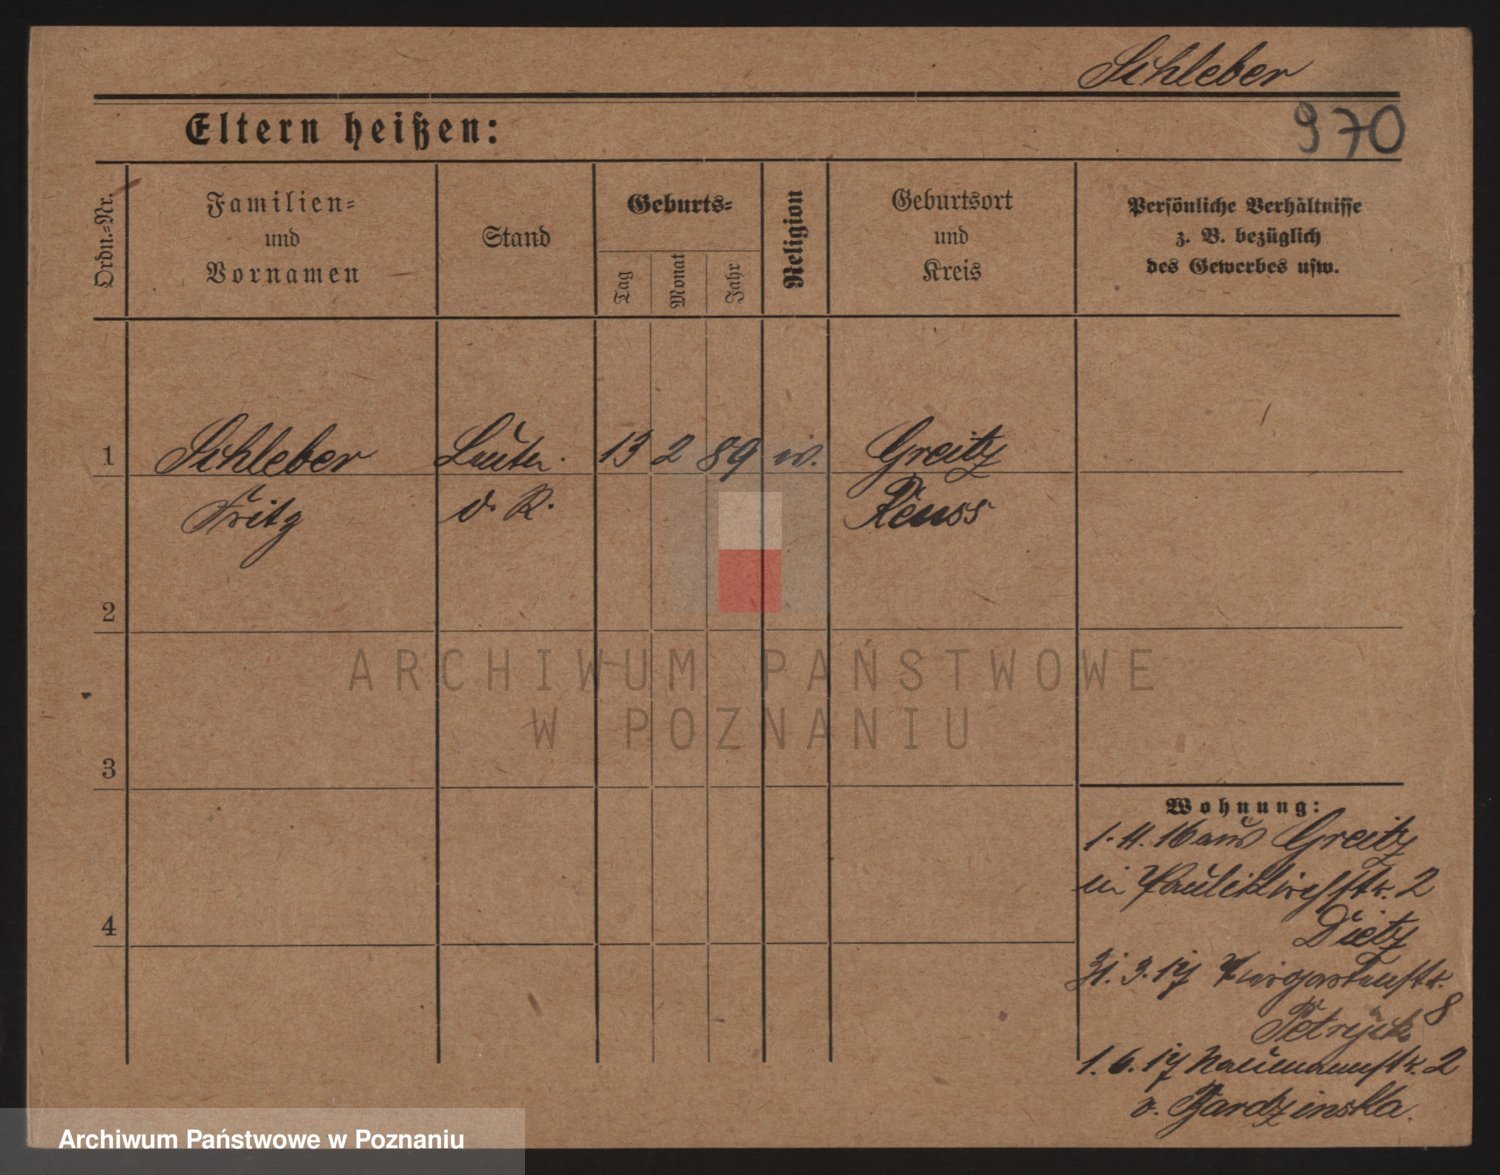 Schleber
970
Eltern heißen:
Ordn.-Nr.
Familien-
und
Vornamen
Stand
Geburts-
Tag
Monat
Jahr
Religion
Geburtsort
und
Kreis
Persönliche Verhältnisse
z. B. bezüglich
des Gewerbes usw.
1 Schleber 13 2 89 Greitz
Fritz d. R. Reuss
2
3
4
Wohnung:
1. 4. 16 aus Greitz
in Paulikirchstr. 2
Dietz
31. 3. 17 Tiergartenstr.
8
1. 6. 17 Naumannstr. 2
v. Bardzinska.
ARCHIWUM PAŃSTWOWE
W POZNANIU
Archiwum Państwowe w Poznaniu